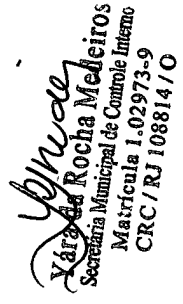 Yára da Rocha Medeiros
Secretaria Municipal de Controle Interno
Matrícula 1.02973-9
CRC / RJ 108814 / O